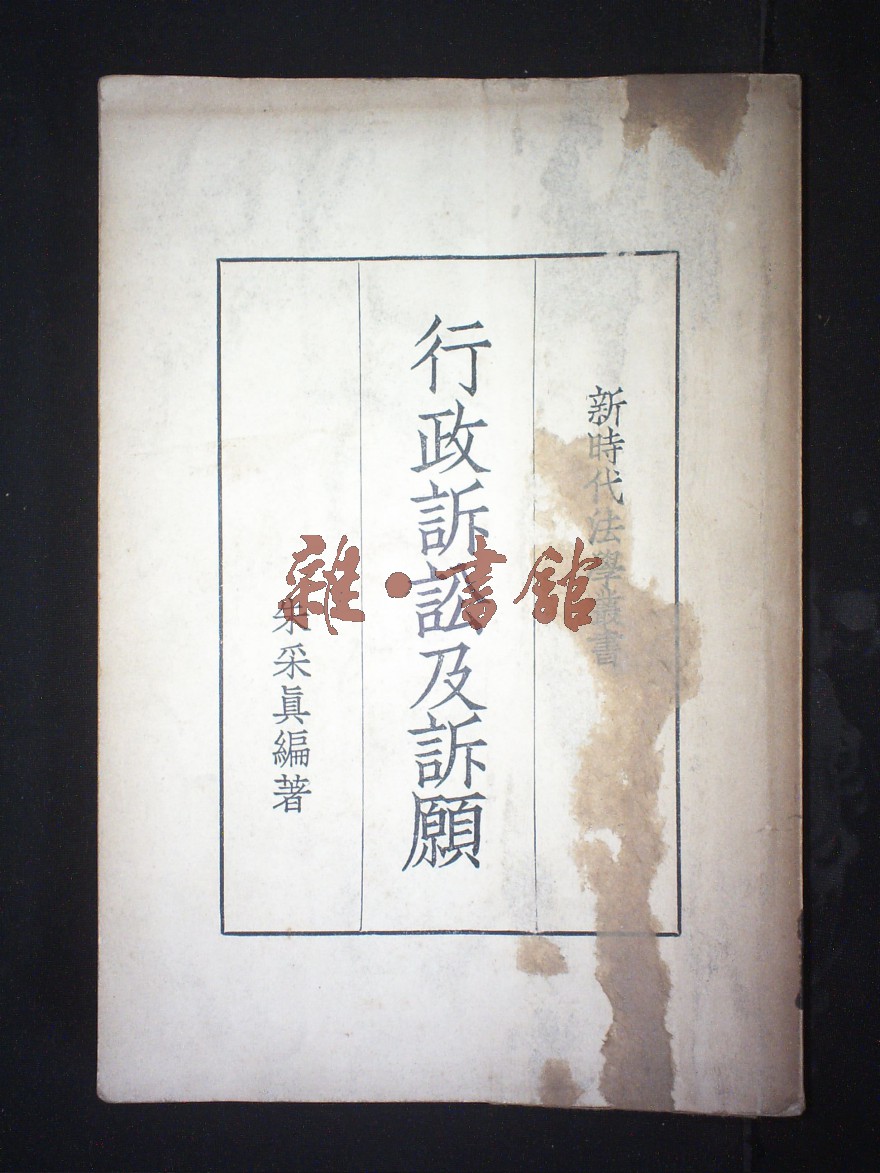 新時代法學叢書
行政訴訟及訴願
朱采眞編著
雜·書館